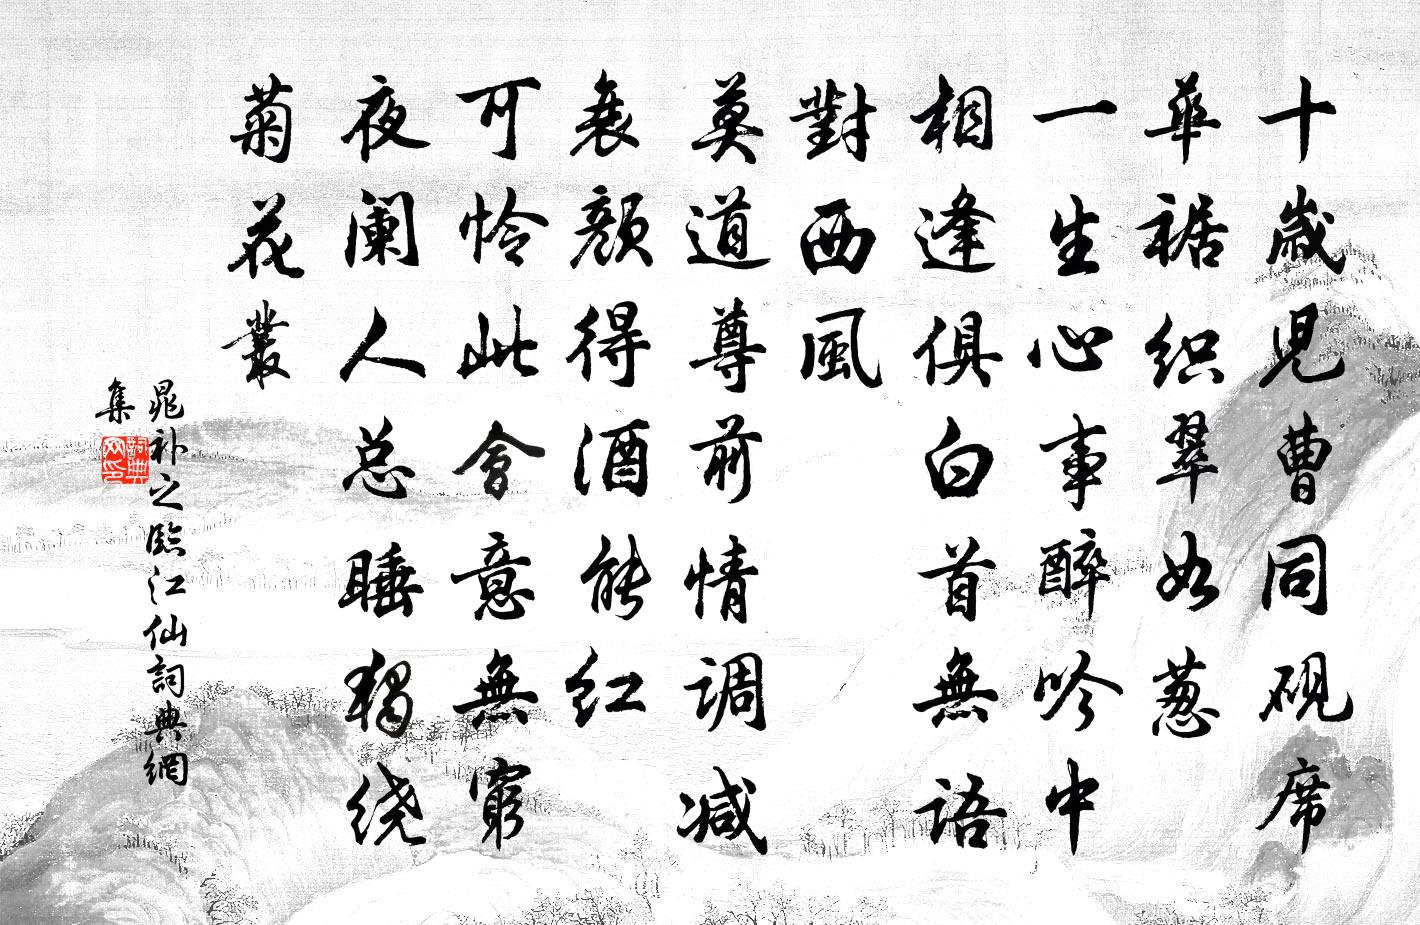 十歲兒曹同硯席
華裾织翠如葱
一生心事醉吟中
相逢俱白首無語
對西風
莫道尊前情调减
衰颜得酒能红
可怜此會意無窮
夜阑人总睡獨绕
菊花叢
晁补之臨江仙詞典網
集